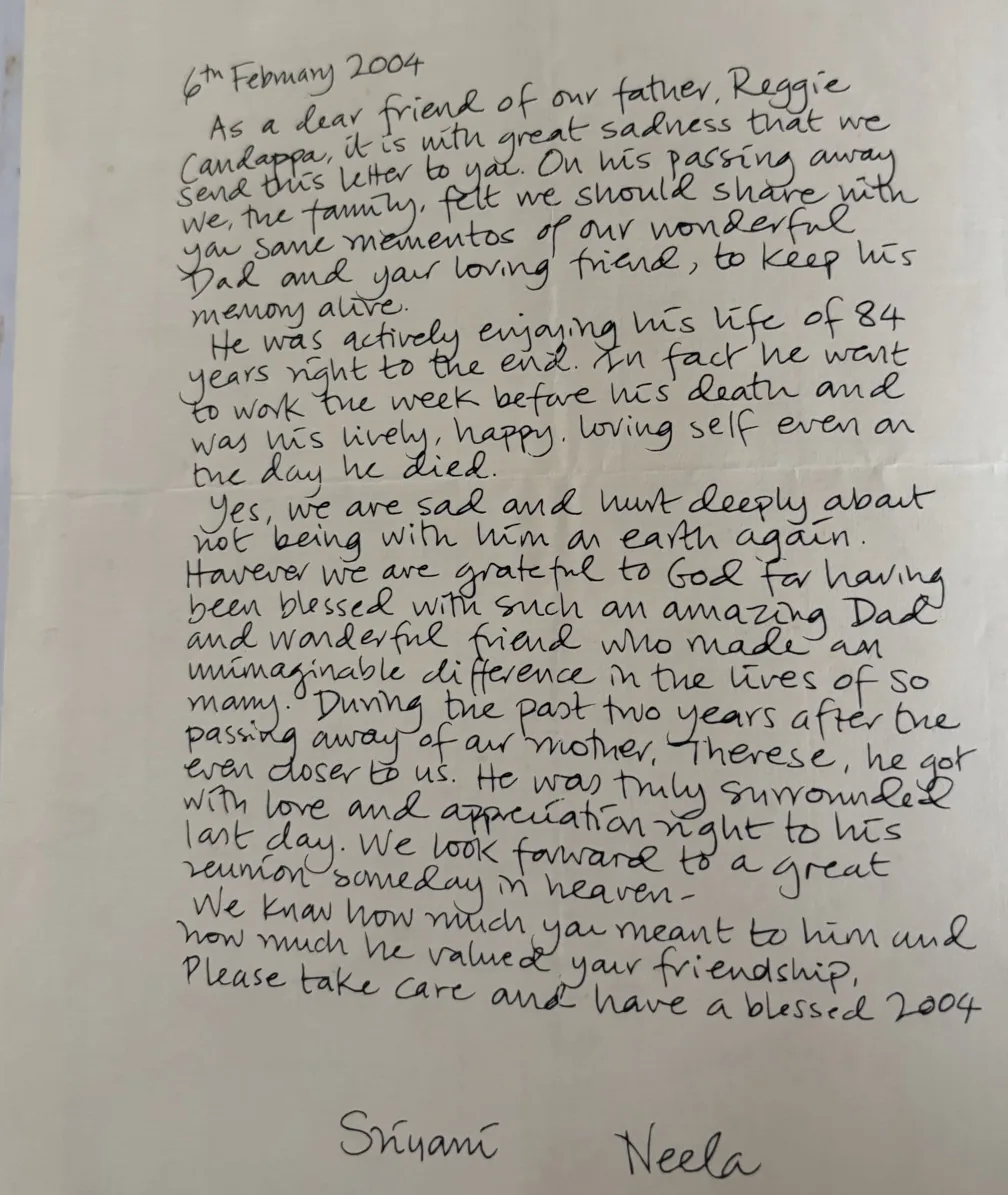 6th February 2004
As a dear friend of our father, Reggie
Candappa, it is with great sadness that we
send this letter to you. On his passing away
we, the family, felt we should share with
you some mementos of our wonderful
Dad and your loving friend, to keep his
memory alive.
He was actively enjoying his life of 84
years right to the end. In fact he went
to work the week before his death and
was his lively, happy, loving self even on
the day he died.
Yes, we are sad and hurt deeply about
not being with him on earth again.
However we are grateful to God for having
been blessed with such an amazing Dad
and wonderful friend who made an
unimaginable difference in the lives of so
many. During the past two years after the
passing away of our mother, Therese, he got
even closer to us. He was truly surrounded
with love and appreciation right to his
last day. We look forward to a great
reunion someday in heaven -
We know how much you meant to him and
how much he valued your friendship,
Please take care and have a blessed 2004
Sriyani Neela